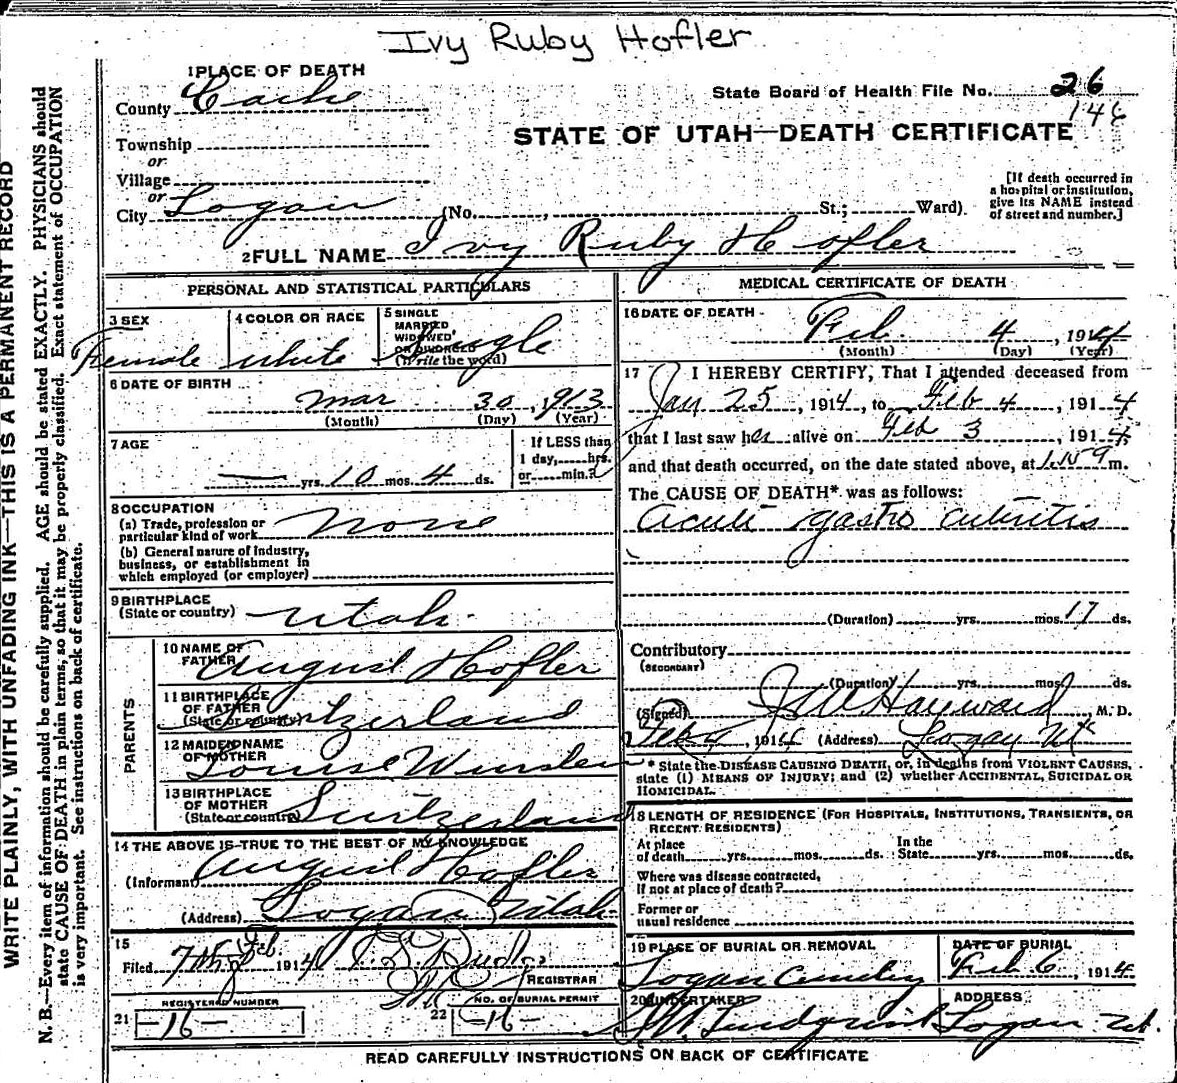 Ivy Ruby Hofler
1 PLACE OF DEATH
County Cache
State Board of Health File No. 26
146
Township
or
Village
or
City Logan (No. , St.; Ward)
STATE OF UTAH—DEATH CERTIFICATE
[If death occurred in
a hospital or institution,
give its NAME instead
of street and number.]
2 FULL NAME Ivy Ruby Hofler
PERSONAL AND STATISTICAL PARTICULARS
3 SEX
Female
4 COLOR OR RACE
white
5 SINGLE
MARRIED,
WIDOWED,
OR DIVORCED
(Write the word)
Single
6 DATE OF BIRTH
Mar 30, 1913
(Month) (Day) (Year)
7 AGE
— yrs. 10 mos. 4 ds.
If LESS than
1 day, hrs.
or min.?
8 OCCUPATION
(a) Trade, profession or
particular kind of work None
(b) General nature of industry,
business, or establishment in
which employed (or employer)
9 BIRTHPLACE
(State or country) Utah
PARENTS
10 NAME OF
FATHER August Hofler
11 BIRTHPLACE
OF FATHER
(State or country) Switzerland
12 MAIDEN NAME
OF MOTHER Louise
13 BIRTHPLACE
OF MOTHER
(State or country) Switzerland
14 THE ABOVE IS TRUE TO THE BEST OF MY KNOWLEDGE
(Informant) August Hofler
(Address) Logan Utah
15
Filed 7th Feb. 1914
REGISTRAR
REGISTERED NUMBER
21 —16—
NO. OF BURIAL PERMIT
22 —16—
MEDICAL CERTIFICATE OF DEATH
16 DATE OF DEATH
Feb. 4, 1914
(Month) (Day) (Year)
17 I HEREBY CERTIFY, That I attended deceased from
Jan 25, 1914, to Feb 4, 1914
that I last saw her alive on Feb 3, 1914
and that death occurred, on the date stated above, at m.
The CAUSE OF DEATH* was as follows:
Acute gastro enteritis
(Duration) yrs. mos. 17 ds.
Contributory
(SECONDARY)
(Duration) yrs. mos. ds.
(Signed) Hayward, M. D.
Feb 4, 1914 (Address) Logan Ut
* State the DISEASE CAUSING DEATH, or, in deaths from VIOLENT CAUSES,
state (1) MEANS OF INJURY; and (2) whether ACCIDENTAL, SUICIDAL OR
HOMICIDAL.
18 LENGTH OF RESIDENCE (FOR HOSPITALS, INSTITUTIONS, TRANSIENTS, OR
RECENT RESIDENTS)
At place
of death yrs. mos. ds.
In the
State yrs. mos. ds.
Where was disease contracted,
if not at place of death?
Former or
usual residence
19 PLACE OF BURIAL OR REMOVAL
Logan
DATE OF BURIAL
Feb 6, 1914
20 UNDERTAKER
Lindquist
ADDRESS
Logan Ut.
READ CAREFULLY INSTRUCTIONS ON BACK OF CERTIFICATE
WRITE PLAINLY, WITH UNFADING INK—THIS IS A PERMANENT RECORD
N. B.—Every item of information should be carefully supplied. AGE should be stated EXACTLY. PHYSICIANS should
state CAUSE OF DEATH in plain terms, so that it may be properly classified. Exact statement of OCCUPATION
is very important. See instructions on back of certificate.